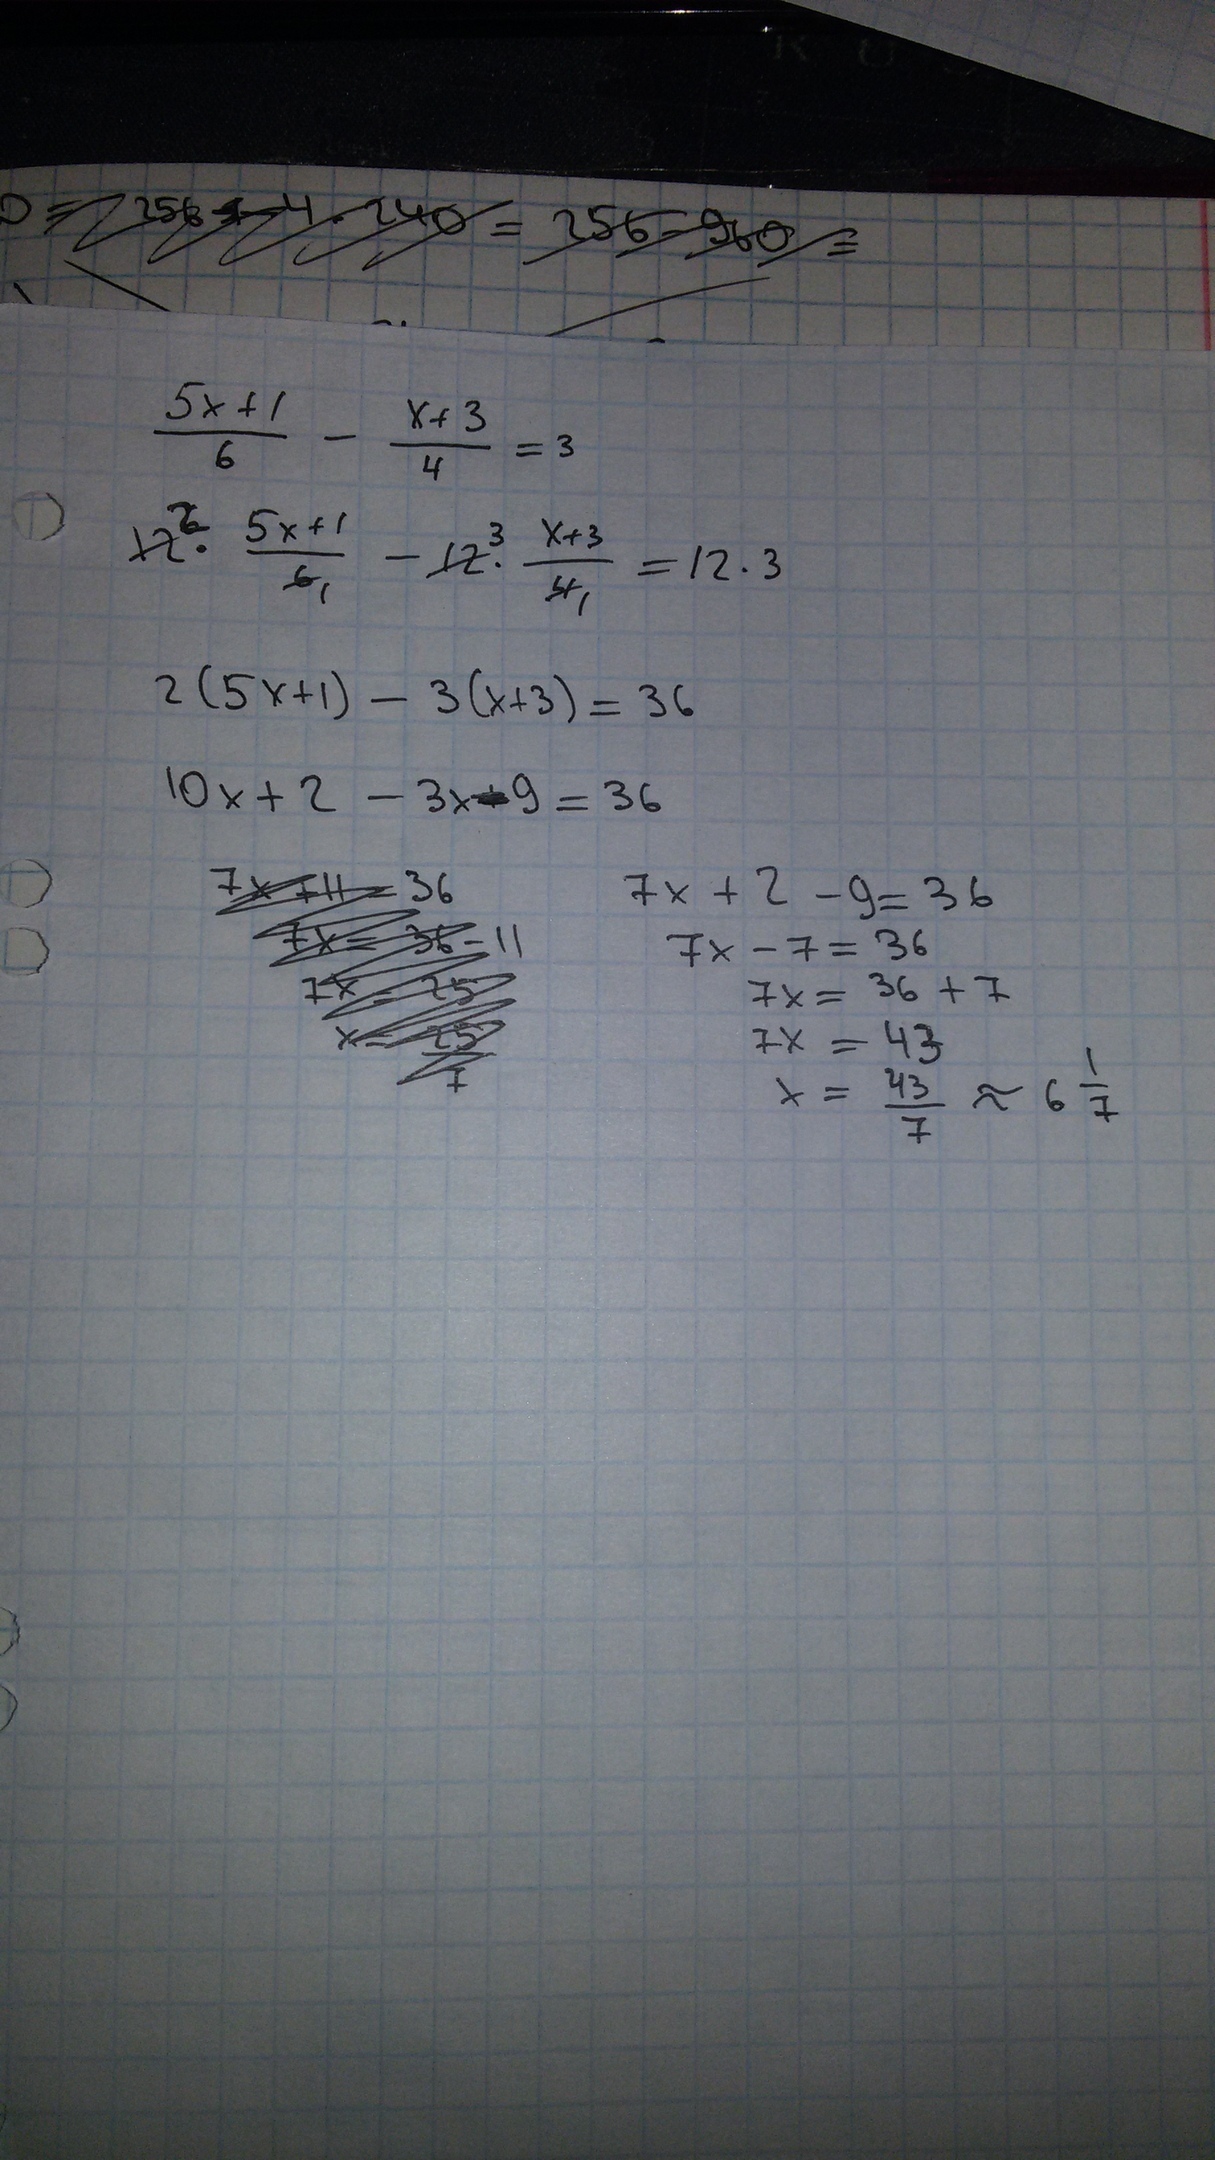 D = 256 - 4 · 240 = 256 - 960 =
(5x+1)/6 - (x+3)/4 = 3
12² · (5x+1)/6₁ - 12³ · (x+3)/4₁ = 12 · 3
2(5x+1) - 3(x+3) = 36
10x + 2 - 3x - 9 = 36
7x + 11 = 36
7x = 36 - 11
7x = 25
x = 25/7
7x + 2 - 9 = 36
7x - 7 = 36
7x = 36 + 7
7x = 43
x = 43/7 ≈ 6 1/7